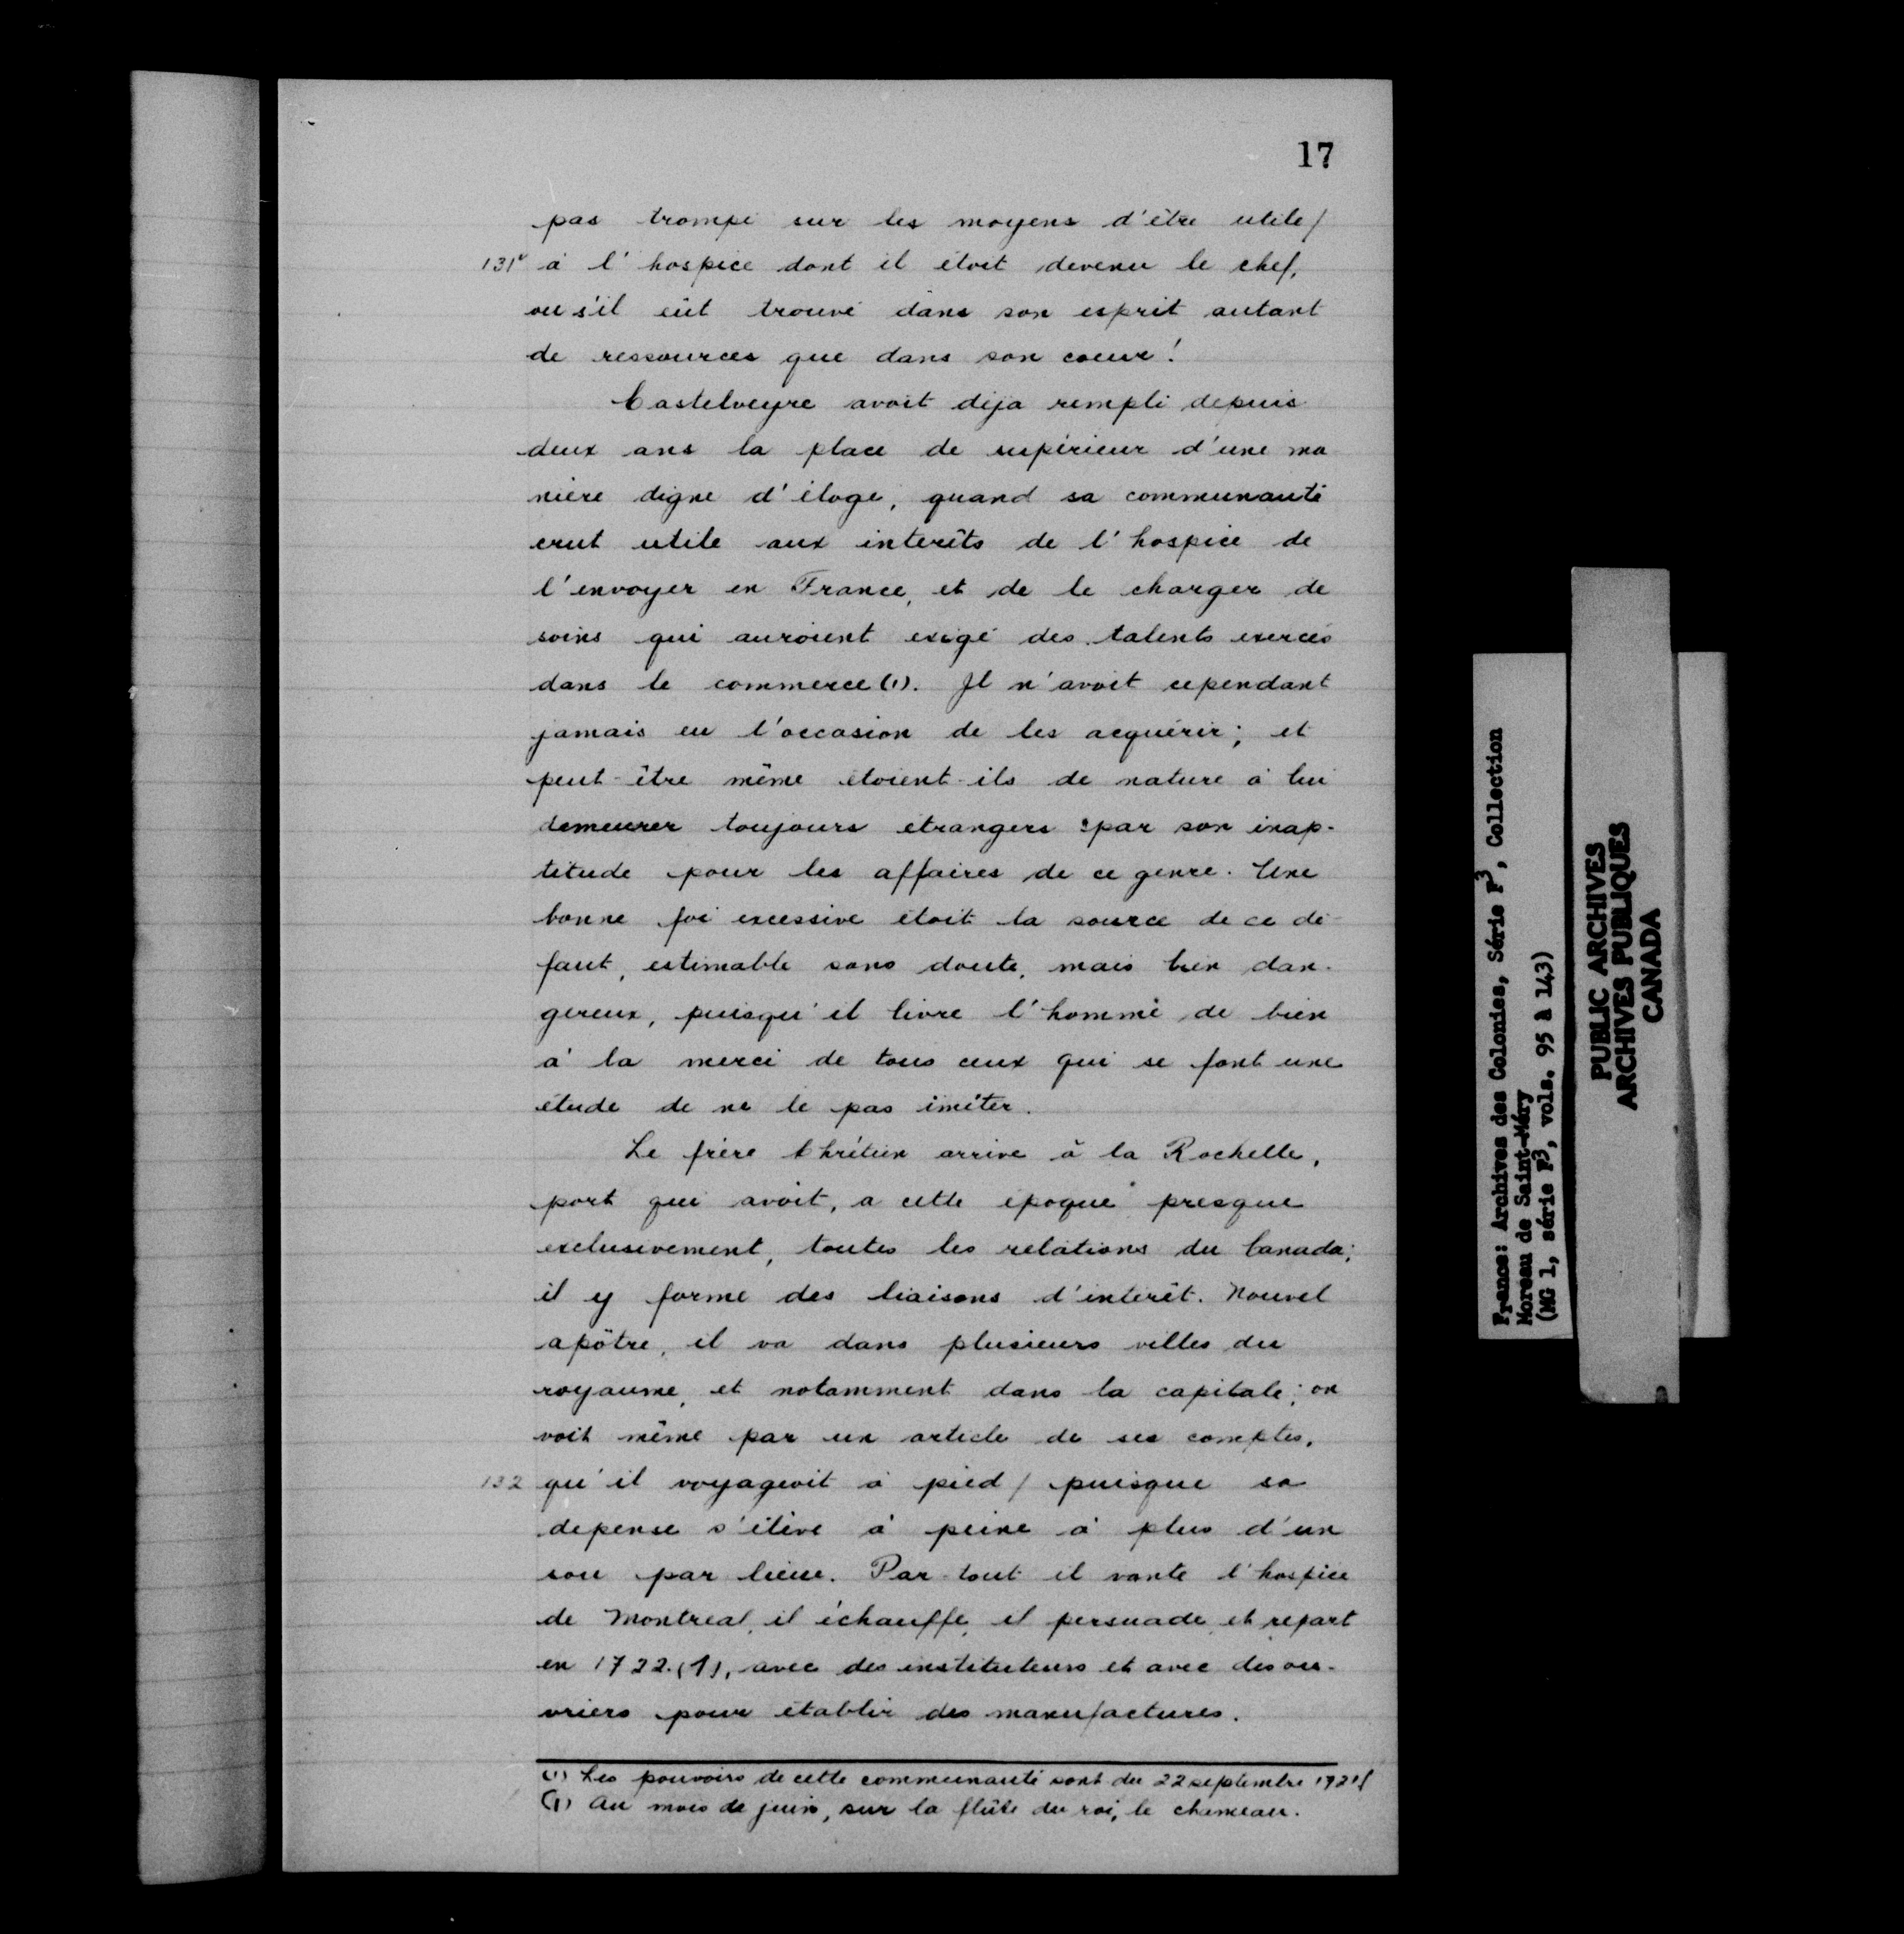 17
pas trompé sur les moyens d'être utile/
131v à l'hospice dont il étoit devenu le chef,
ou s'il eût trouvé dans son esprit autant
de ressources que dans son coeur!
Castelveyre avoit déja rempli depuis
deux ans la place de supérieur d'une ma
nière digne d'éloge, quand sa communauté
crut utile aux interêts de l'hospice de
l'envoyer en France, et de le charger de
soins qui auroient exigé des talents exercés
dans le commerce (1). Il n'avoit cependant
jamais eu l'occasion de les acquérir; et
peut-être même étoient-ils de nature à lui
demeurer toujours etrangers par son inap-
titude pour les affaires de ce genre. Une
bonne foi excessive étoit la source de ce dé-
faut, estimable sans doute, mais bien dan-
gereux, puisqu'il livre l'homme de bien
à la merci de tous ceux qui se font une
étude de ne le pas imiter.
Le frère Chrétien arrive à la Rochelle,
port qui avoit, a cette epoque presque
exclusivement, toutes les relations du Canada;
il y forme des liaisons d'interêt. Nouvel
apôtre, il va dans plusieurs villes du
royaume, et notamment dans la capitale; on
voit même par un article de ses comptes,
132 qu'il voyageoit à pied/ puisque sa
depense s'élève à peine à plus d'un
sou par lieue. Par-tout il vante l'hospice
de Montreal, il échauffe, il persuade, et repart
en 1722. (1), avec des instituteurs et avec des ou-
vriers pour établir des manufactures.
(1) Les pouvoirs de cette communauté sont du 22 septembre 1721/
(1) Au mois de juin, sur la flûte du roi, le chameau.
France: Archives des Colonies, Série F3, Collection
Moreau de Saint-Méry
(MG 1, série F3, vols. 95 à 143)
PUBLIC ARCHIVES
ARCHIVES PUBLIQUES
CANADA